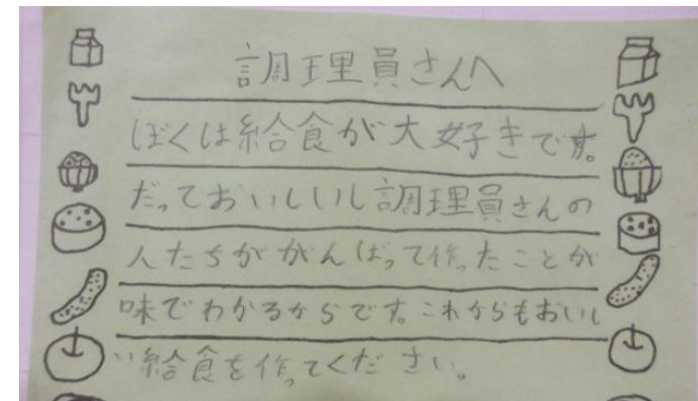 調理員さんへ
ぼくは給食が大好きです。
だっておいしいし調理員さんの
人たちががんばって作ったことが
味でわかるからです。これからもおいし
い給食を作ってください。